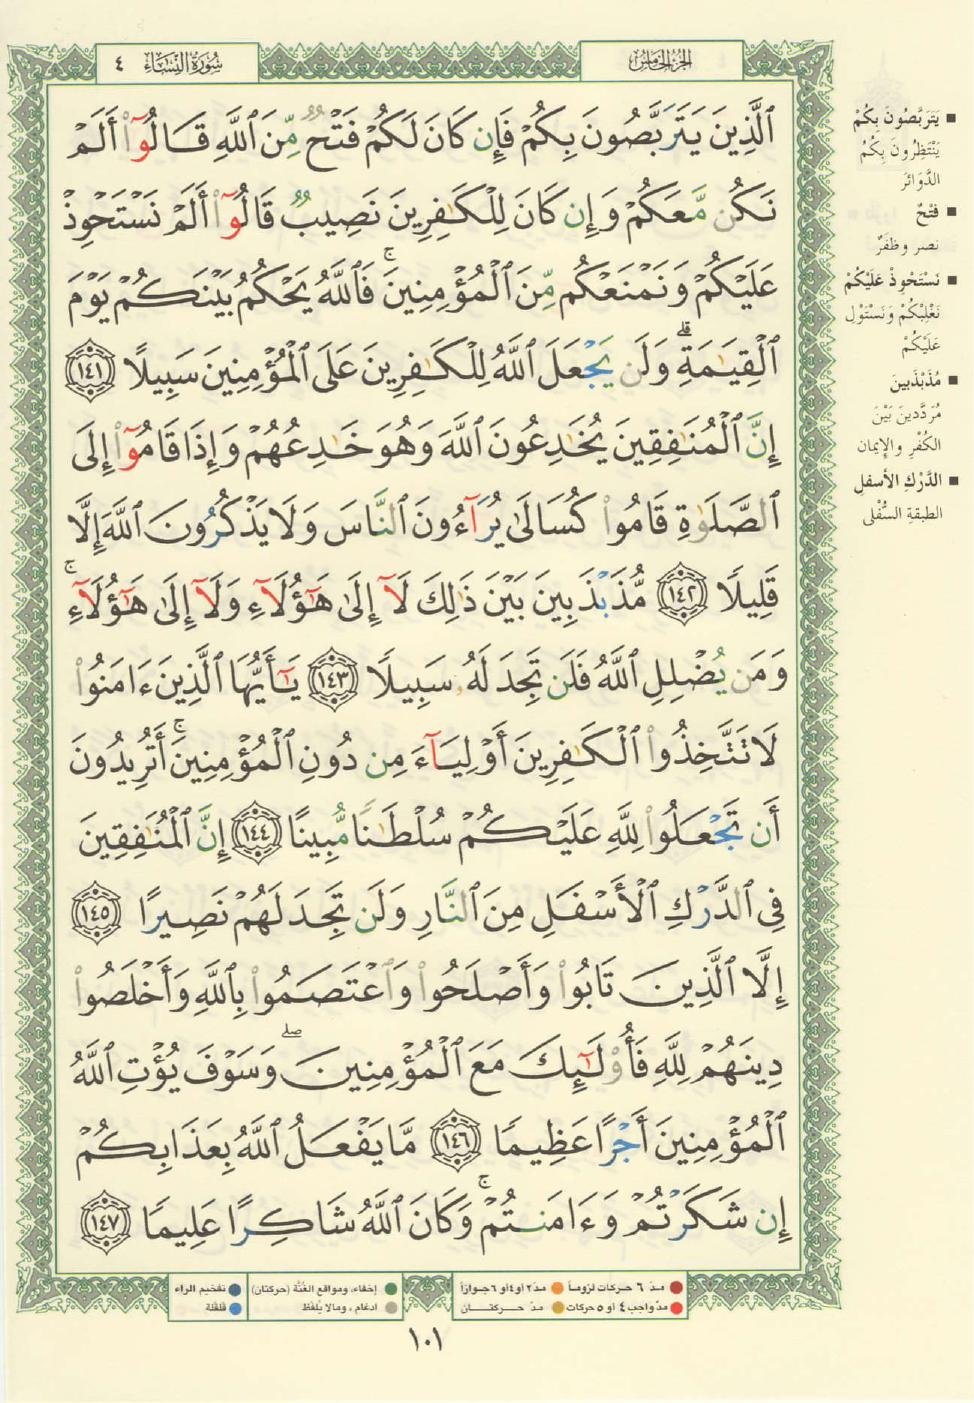 الجزء الخامس
سورة النساء ٤
ٱلَّذِينَ يَتَرَبَّصُونَ بِكُمْ فَإِن كَانَ لَكُمْ فَتْحٌ مِّنَ ٱللَّهِ قَالُوٓا۟ أَلَمْ
نَكُن مَّعَكُمْ وَإِن كَانَ لِلْكَٰفِرِينَ نَصِيبٌ قَالُوٓا۟ أَلَمْ نَسْتَحْوِذْ
عَلَيْكُمْ وَنَمْنَعْكُم مِّنَ ٱلْمُؤْمِنِينَ ۚ فَٱللَّهُ يَحْكُمُ بَيْنَكُمْ يَوْمَ
ٱلْقِيَٰمَةِ ۗ وَلَن يَجْعَلَ ٱللَّهُ لِلْكَٰفِرِينَ عَلَى ٱلْمُؤْمِنِينَ سَبِيلًا ١٤١
إِنَّ ٱلْمُنَٰفِقِينَ يُخَٰدِعُونَ ٱللَّهَ وَهُوَ خَٰدِعُهُمْ وَإِذَا قَامُوٓا۟ إِلَى
ٱلصَّلَوٰةِ قَامُوا۟ كُسَالَىٰ يُرَآءُونَ ٱلنَّاسَ وَلَا يَذْكُرُونَ ٱللَّهَ إِلَّا
قَلِيلًا ١٤٢ مُّذَبْذَبِينَ بَيْنَ ذَٰلِكَ لَآ إِلَىٰ هَٰٓؤُلَآءِ وَلَآ إِلَىٰ هَٰٓؤُلَآءِ ۚ
وَمَن يُضْلِلِ ٱللَّهُ فَلَن تَجِدَ لَهُۥ سَبِيلًا ١٤٣ يَٰٓأَيُّهَا ٱلَّذِينَ ءَامَنُوا۟
لَا تَتَّخِذُوا۟ ٱلْكَٰفِرِينَ أَوْلِيَآءَ مِن دُونِ ٱلْمُؤْمِنِينَ ۚ أَتُرِيدُونَ
أَن تَجْعَلُوا۟ لِلَّهِ عَلَيْكُمْ سُلْطَٰنًا مُّبِينًا ١٤٤ إِنَّ ٱلْمُنَٰفِقِينَ
فِى ٱلدَّرْكِ ٱلْأَسْفَلِ مِنَ ٱلنَّارِ وَلَن تَجِدَ لَهُمْ نَصِيرًا ١٤٥
إِلَّا ٱلَّذِينَ تَابُوا۟ وَأَصْلَحُوا۟ وَٱعْتَصَمُوا۟ بِٱللَّهِ وَأَخْلَصُوا۟
دِينَهُمْ لِلَّهِ فَأُو۟لَٰٓئِكَ مَعَ ٱلْمُؤْمِنِينَ ۖ وَسَوْفَ يُؤْتِ ٱللَّهُ
ٱلْمُؤْمِنِينَ أَجْرًا عَظِيمًا ١٤٦ مَّا يَفْعَلُ ٱللَّهُ بِعَذَابِكُمْ
إِن شَكَرْتُمْ وَءَامَنتُمْ ۚ وَكَانَ ٱللَّهُ شَاكِرًا عَلِيمًا ١٤٧
■ يَتَرَبَّصُونَ بِكُمْ
يَنْتَظِرُونَ بِكُمُ
الدَّوَائَر
■ فَتْحٌ
نصر وظَفَرٌ
■ نَسْتَحْوِذْ عَلَيْكُمْ
نَغْلِبْكُمْ وَنَسْتَوْل
عَلَيْكُمْ
■ مُذَبْذَبِينَ
مُرَدَّدينَ بَيْنَ
الكُفْرِ والإيمان
■ الدَّرْكِ الأسفلِ
الطبقةِ السُّفْلى
مدّ ٦ حركات لزوماً مدّ ٢ أو ٤ أو ٦ جوازاً
مدّ واجب ٤ أو ٥ حركات مدّ حركتان
إخفاء، ومواقع الغُنَّة (حركتان) تفخيم الراء
ادغام، ومالا يُلفَظ قلقلة
١٠١